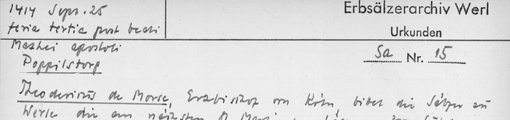 1414 Sept. 25
feria tertia post beati
Mathei apostoli
Poppilstorp
Erbsälzerarchiv Werl
Urkunden
Sa Nr. 15
Theodericus de Morse, Erzbischof von Köln, bittet die Sälzer zu
Werle die am nächsten